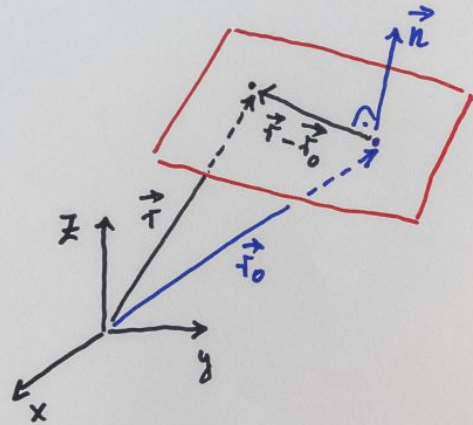 n⃗
r⃗ - r⃗₀
z
r⃗
r⃗₀
y
x